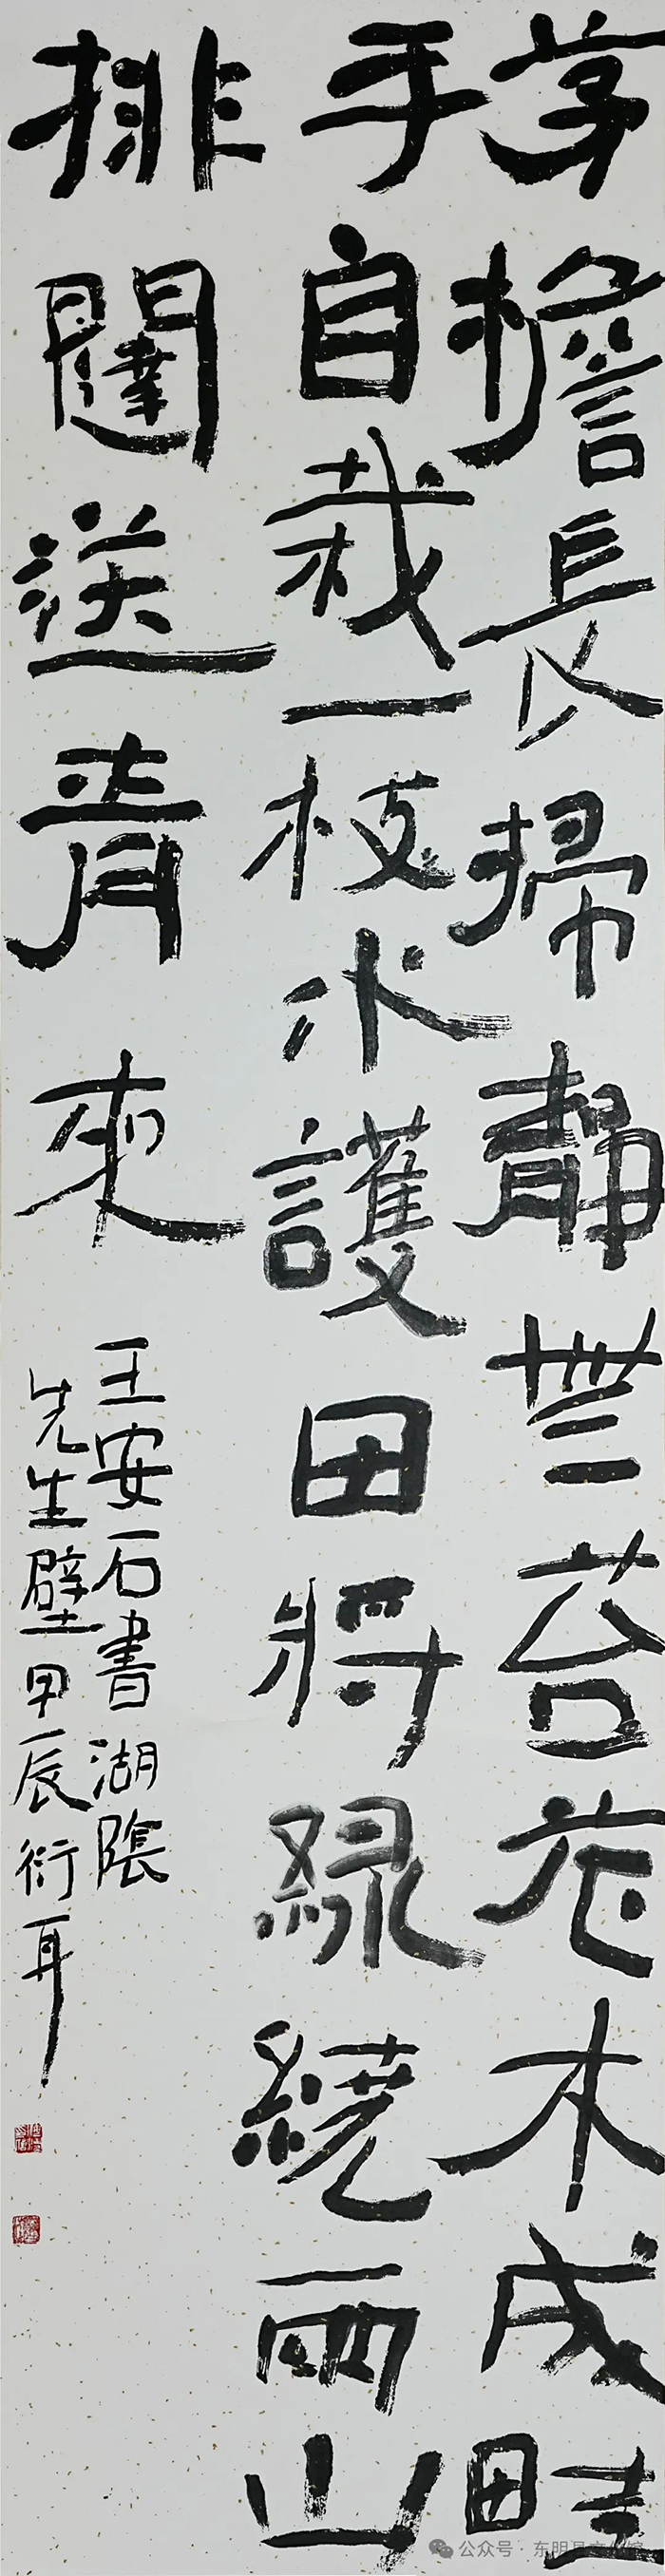 茅檐長掃靜無苔花木成畦
手自栽一枝水護田將綠繞兩山
排闥送青來
王安石書湖陰
先生壁甲辰衍
公众号 · 东明县文化馆